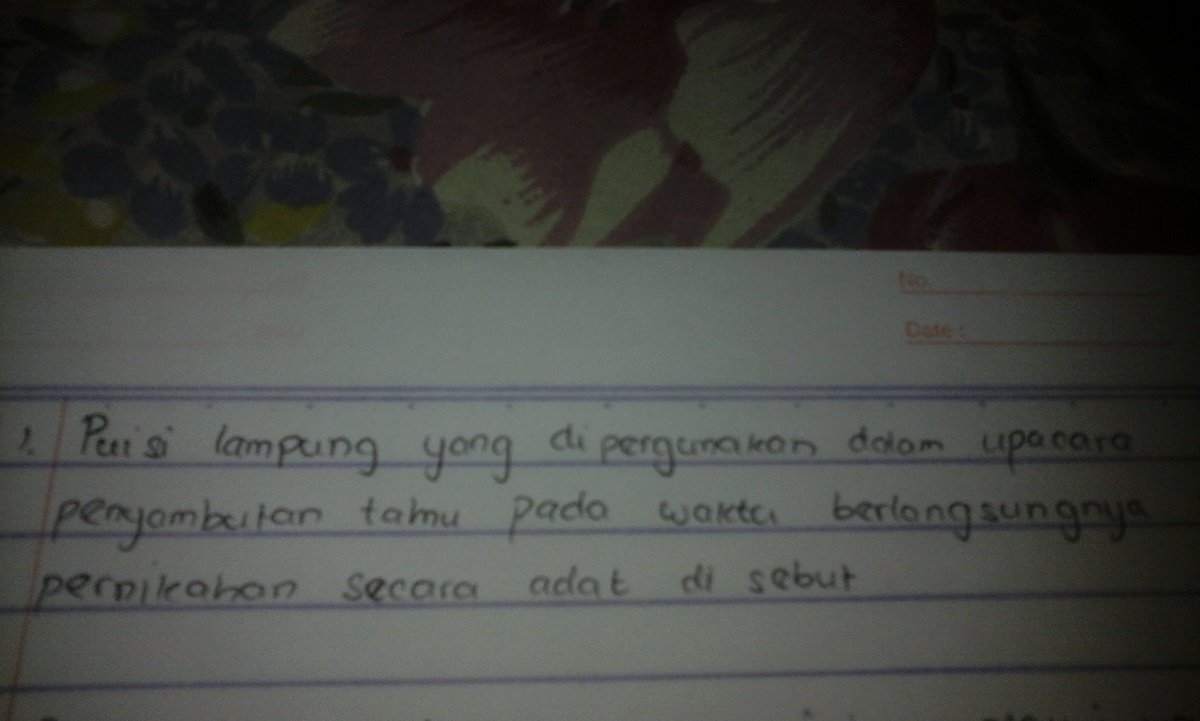 No.
Date :
1. Puisi lampung yang di pergunakan dalam upacara
penyambutan tamu pada waktu berlangsungnya
pernikahan secara adat di sebut